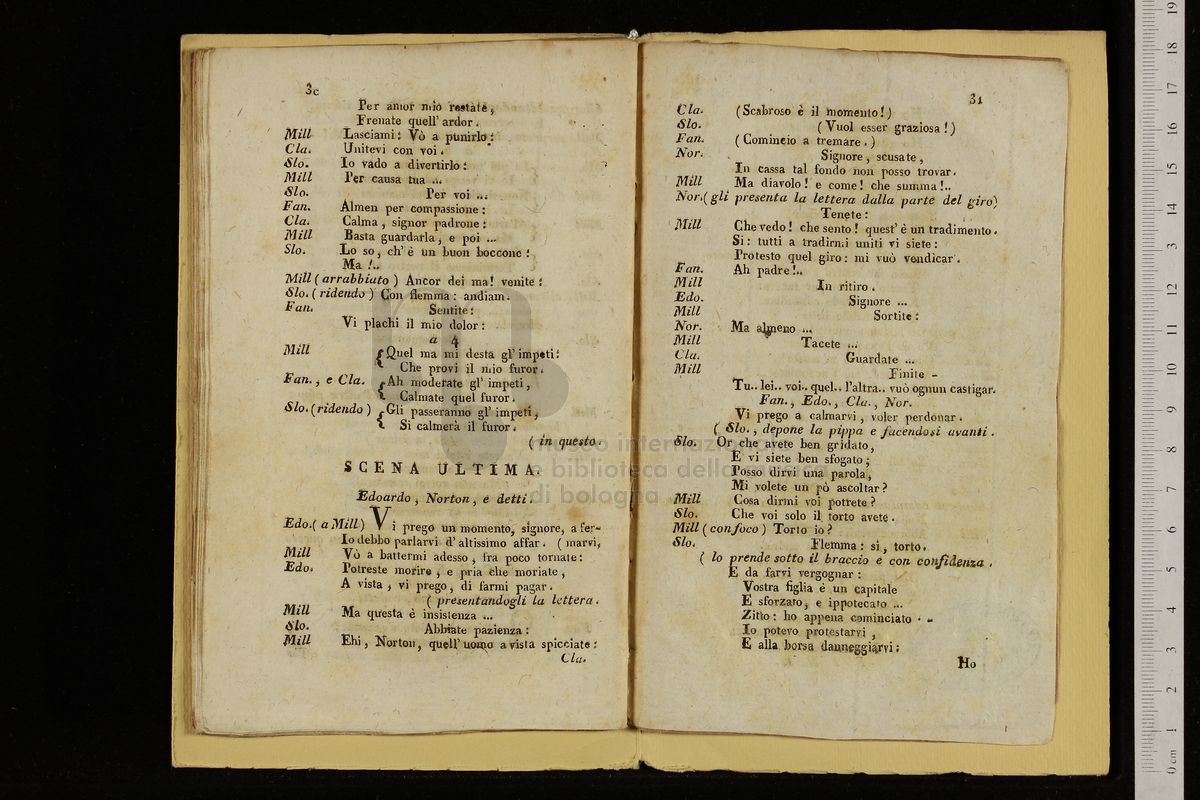 3c
Per amor mio restate,
Frenate quell' ardor.
Mill Lasciami: Vò a punirlo:
Cla. Unitevi con voi.
Slo. Io vado a divertirlo:
Mill Per causa tua ...
Slo. Per voi ...
Fan. Almen per compassione:
Cla. Calma, signor padrone:
Mill Basta guardarla, e poi ...
Slo. Lo so, ch' è un buon boccone:
Ma !..
Mill (arrabbiato) Ancor dei ma! venite:
Slo. (ridendo) Con flemma: andiam.
Fan. Sentite:
Vi plachi il mio dolor:
a 4
Mill Quel ma mi desta gl' impeti:
Che provi il mio furor.
Fan., e Cla. Ah moderate gl' impeti,
Calmate quel furor.
Slo. (ridendo) Gli passeranno gl' impeti,
Si calmerà il furor.
(in questo.
SCENA ULTIMA.
Edoardo, Norton, e detti.
Edo. (a Mill) Vi prego un momento, signore, a fer-
Io debbo parlarvi d' altissimo affar. (marvi,
Mill Vò a battermi adesso, fra poco tornate:
Edo. Potreste morire, e pria che moriate,
A vista, vi prego, di farmi pagar.
(presentandogli la lettera.
Mill Ma questa è insistenza ...
Slo. Abbiate pazienza:
Mill Ehi, Norton, quell' uomo a vista spicciate:
Cla.
31
Cla. (Scabroso è il momento!)
Slo. (Vuol esser graziosa!)
Fan. (Comincio a tremare.)
Nor. Signore, scusate,
In cassa tal fondo non posso trovar.
Mill Ma diavolo! e come! che summa!..
Nor. (gli presenta la lettera dalla parte del giro)
Tenete:
Mill Che vedo! che sento! quest' è un tradimento.
Si: tutti a tradirmi uniti vi siete:
Protesto quel giro: mi vuò vendicar.
Fan. Ah padre!..
Mill In ritiro.
Edo. Signore ...
Mill Sortite:
Nor. Ma almeno ...
Mill Tacete ...
Cla. Guardate ...
Mill Finite -
Tu.. lei.. voi.. quel.. l'altra.. vuò ognun castigar.
Fan., Edo., Cla., Nor.
Vi prego a calmarvi, voler perdonar.
(Slo., depone la pippa e facendosi avanti.
Slo. Or che avete ben gridato,
E vi siete ben sfogato;
Posso dirvi una parola,
Mi volete un pò ascoltar?
Mill Cosa dirmi voi potrete?
Slo. Che voi solo il torto avete.
Mill (con foco) Torto io?
Slo. Flemma: si, torto.
(lo prende sotto il braccio e con confidenza.
E da farvi vergognar:
Vostra figlia è un capitale
E sforzato, e ippotecato ...
Zitto: ho appena cominciato - -
Io potevo protestarvi,
E alla borsa danneggiarvi:
Ho
museo internazionale
e biblioteca della musica
di bologna